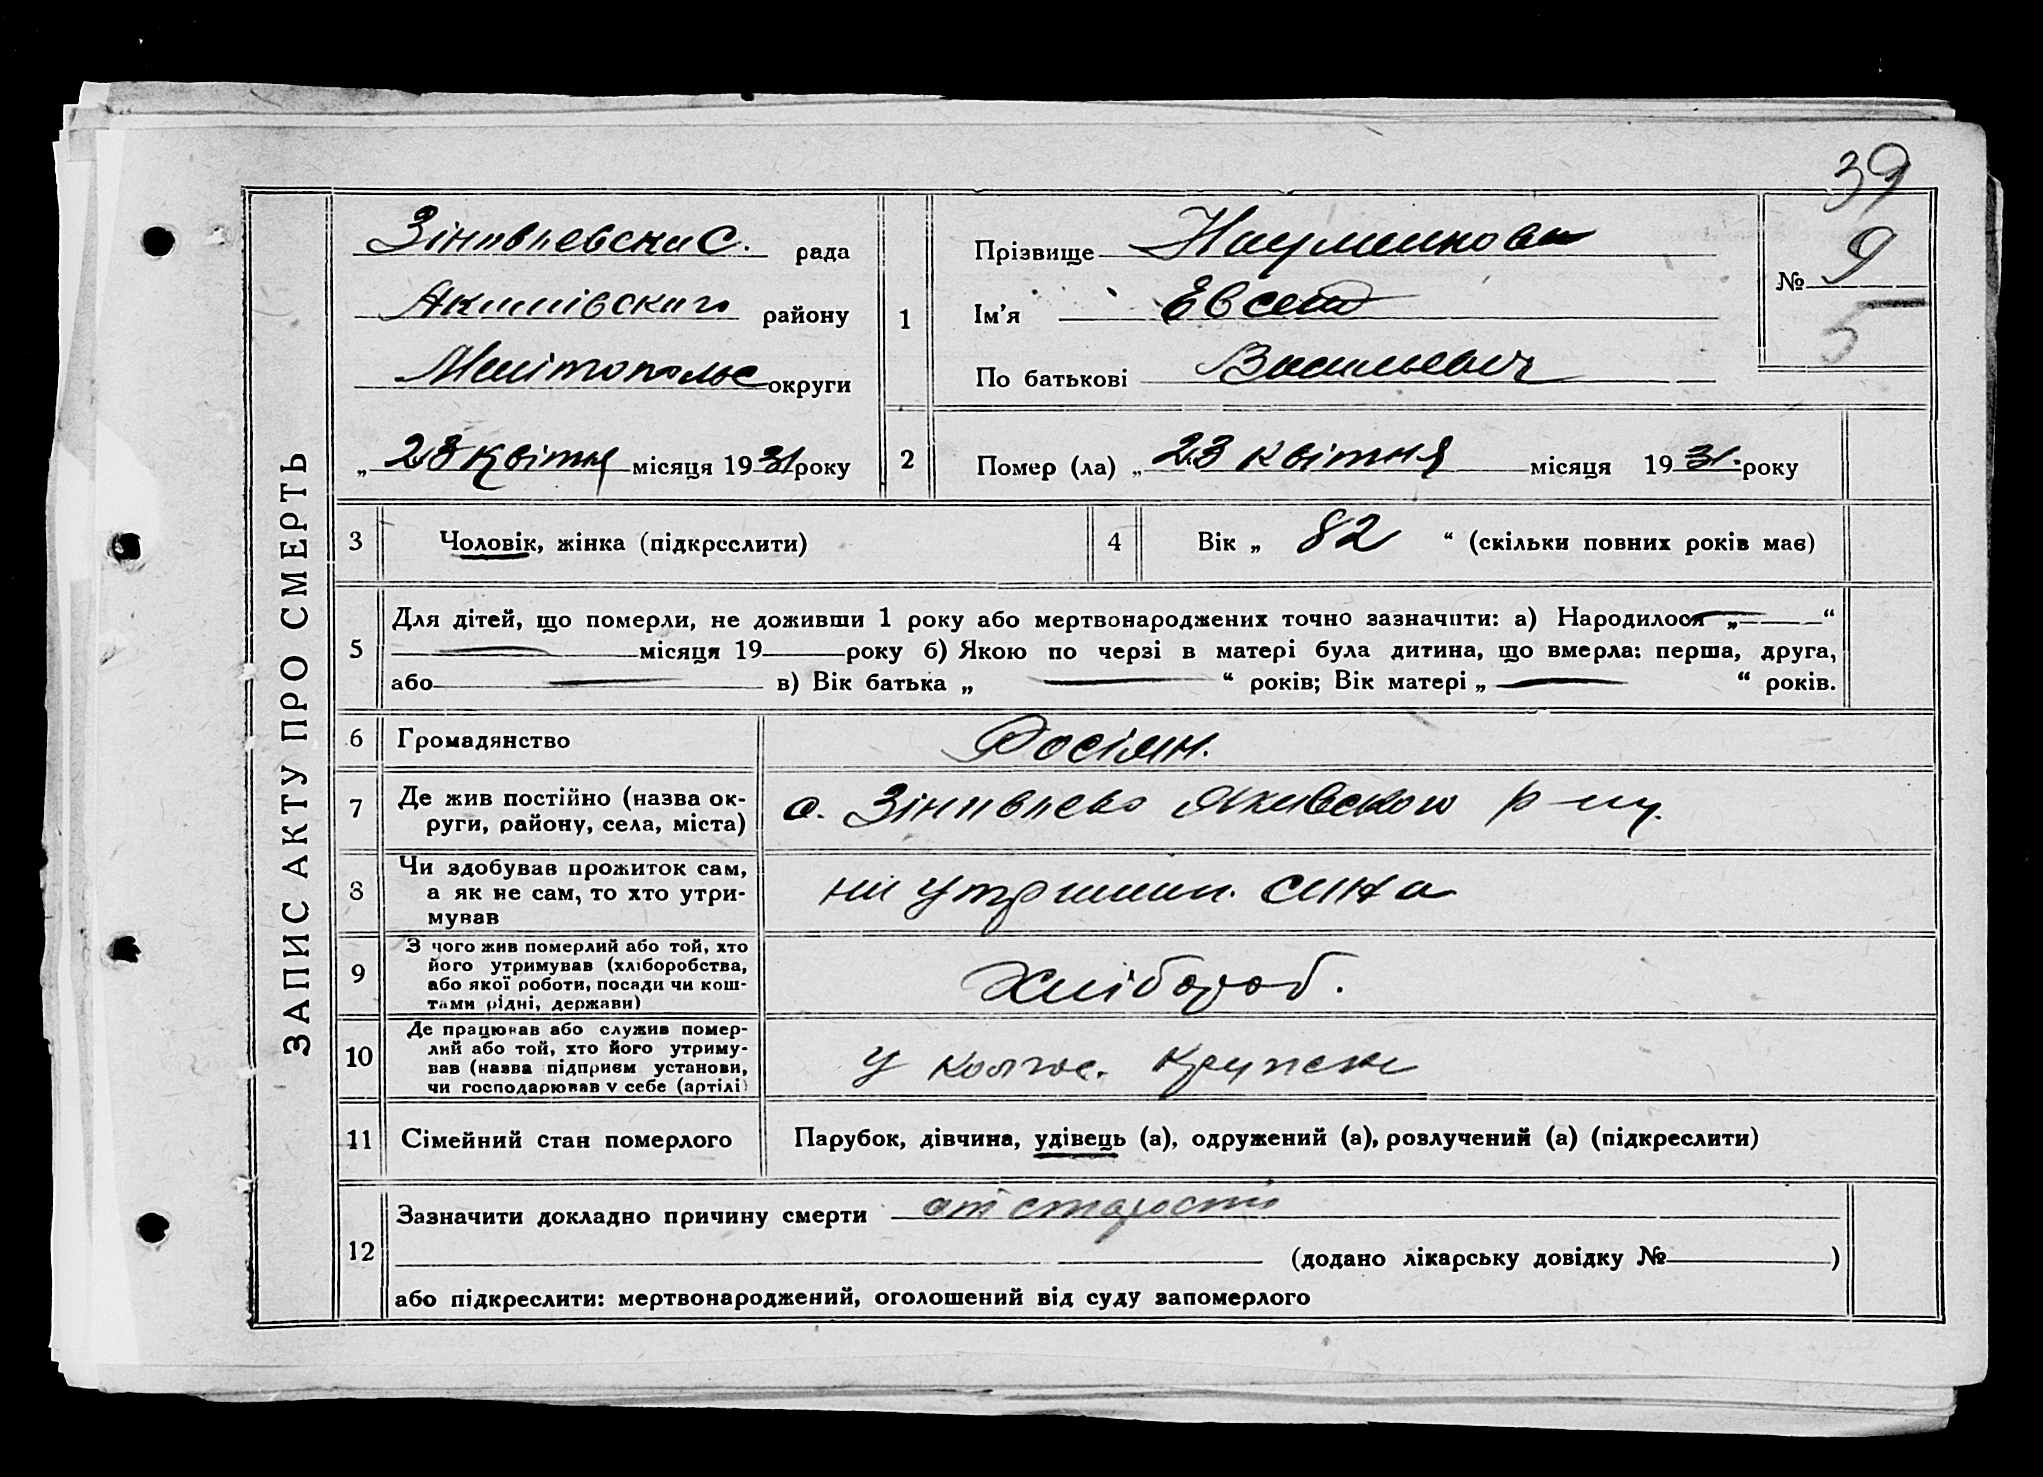 39
ЗАПИС АКТУ ПРО СМЕРТЬ
рада
району
округи
„ 23 квітня місяця 1931 року
1
Прізвище
Ім'я Евсей
По батькові Васильевич
№ 9
5
2
Помер (ла) „ 23 квітня місяця 1931. року
3
Чоловік, жінка (підкреслити)
4
Вік „ 82 “ (скільки повних років має)
5
Для дітей, що померли, не доживши 1 року або мертвонароджених точно зазначити: а) Народилося „ “
місяця 19 року б) Якою по черзі в матері була дитина, що вмерла: перша, друга,
або в) Вік батька „ “ років; Вік матері „ “ років.
6
Громадянство
Росіян.
7
Де жив постійно (назва ок-
руги, району, села, міста)
с. р-ну.
8
Чи здобував прожиток сам,
а як не сам, то хто утри-
мував
на утриман. сина
9
З чого жив померлий або той, хто
його утримував (хліборобства,
або якої роботи, посади чи кош-
тами рідні, держави)
Хлібороб.
10
Де працював або служив помер-
лий або той, хто його утриму-
вав (назва підприєм установи,
чи господарював у себе (артілі)
у колгос.
11
Сімейний стан померлого
Парубок, дівчина, удівець (а), одружений (а), розлучений (а) (підкреслити)
12
Зазначити докладно причину смерти от старости
(додано лікарську довідку № )
або підкреслити: мертвонароджений, оголошений від суду запомерлого